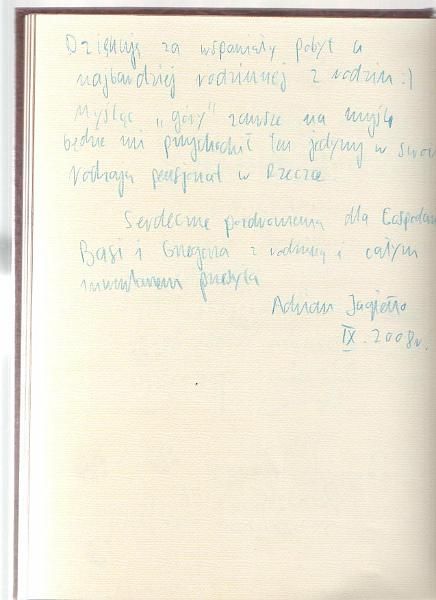 Dziękuję za wspaniały pobyt u
najbardziej rodzinnej z rodzin :)
Myśląc „góry" zawsze na myśl
będzie mi przychodził ten jedyny w swoim
rodzaju pensjonat w Rzecze
Serdeczne pozdrowienia dla Gospodarzy
Basi i Grzegorza z rodziną i całym
inwentarzem
Adrian Jagiełło
IX. 2008r.